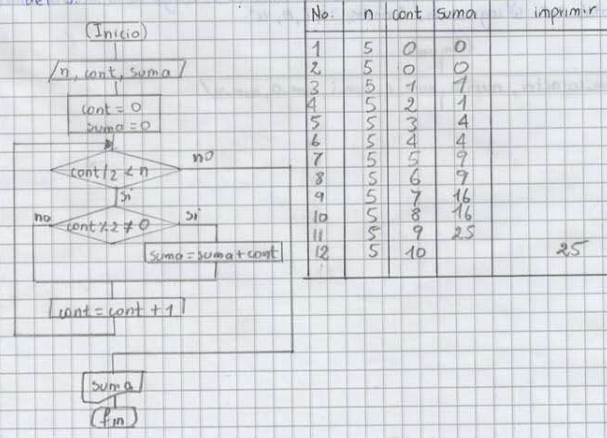 (Inicio)
n, cont, suma
cont = 0
suma = 0
cont/2 < n
no
si
cont % 2 ≠ 0
no
si
suma = suma + cont
cont = cont + 1
suma
fin
No. n cont suma imprimir
1 5 0 0
2 5 0 0
3 5 1 1
4 5 2 1
5 5 3 4
6 5 4 4
7 5 5 9
8 5 6 9
9 5 7 16
10 5 8 16
11 5 9 25
12 5 10 25